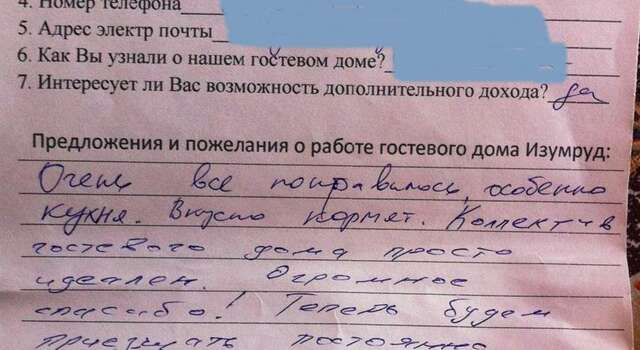 4. Номер телефона
5. Адрес электр почты
6. Как Вы узнали о нашем гостевом доме?
7. Интересует ли Вас возможность дополнительного дохода? да
Предложения и пожелания о работе гостевого дома Изумруд:
Очень все понравилось, особенно
кухня. Вкусно кормят. Коллектив
гостевого дома просто
идеален. Огромное
спасибо! Теперь будем
приезжать постоянно